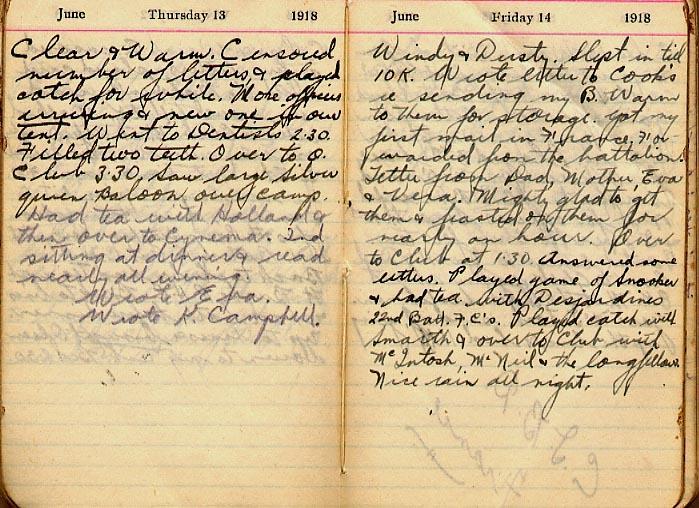 June Thursday 13 1918
Clear & Warm. Censored
number of letters, & played
catch for while. More officers
arriving & new one in our
tent. Went to Dentists 2.30.
Filled two teeth. Over to O.
Club 3:30, Saw large Silver
queer Baloon over camp.
Had tea with Holland &
then over to Cynema. 2nd
sitting at dinner & read
nearly all evening.
Wrote Eva.
Wrote K. Campbell.
June Friday 14 1918
Windy & Dusty. Slept in till
10 K. Wrote letter to Cooks
re sending my B. Warm
to them for storage. got my
first mail in France, For-
warded from the battalion.
Letter from Dad, Mother, Eva
& Vera. Mighty glad to get
them & feasted on them for
nearly an hour. Over
to Club at 1:30. Answered some
letters. Played game of Snooker
& had tea with Desjardines
22nd Batt. F.C's. Played catch with
Smarth & over to Club with
McIntosh, McNeil & the longfellow.
Nice rain all night.